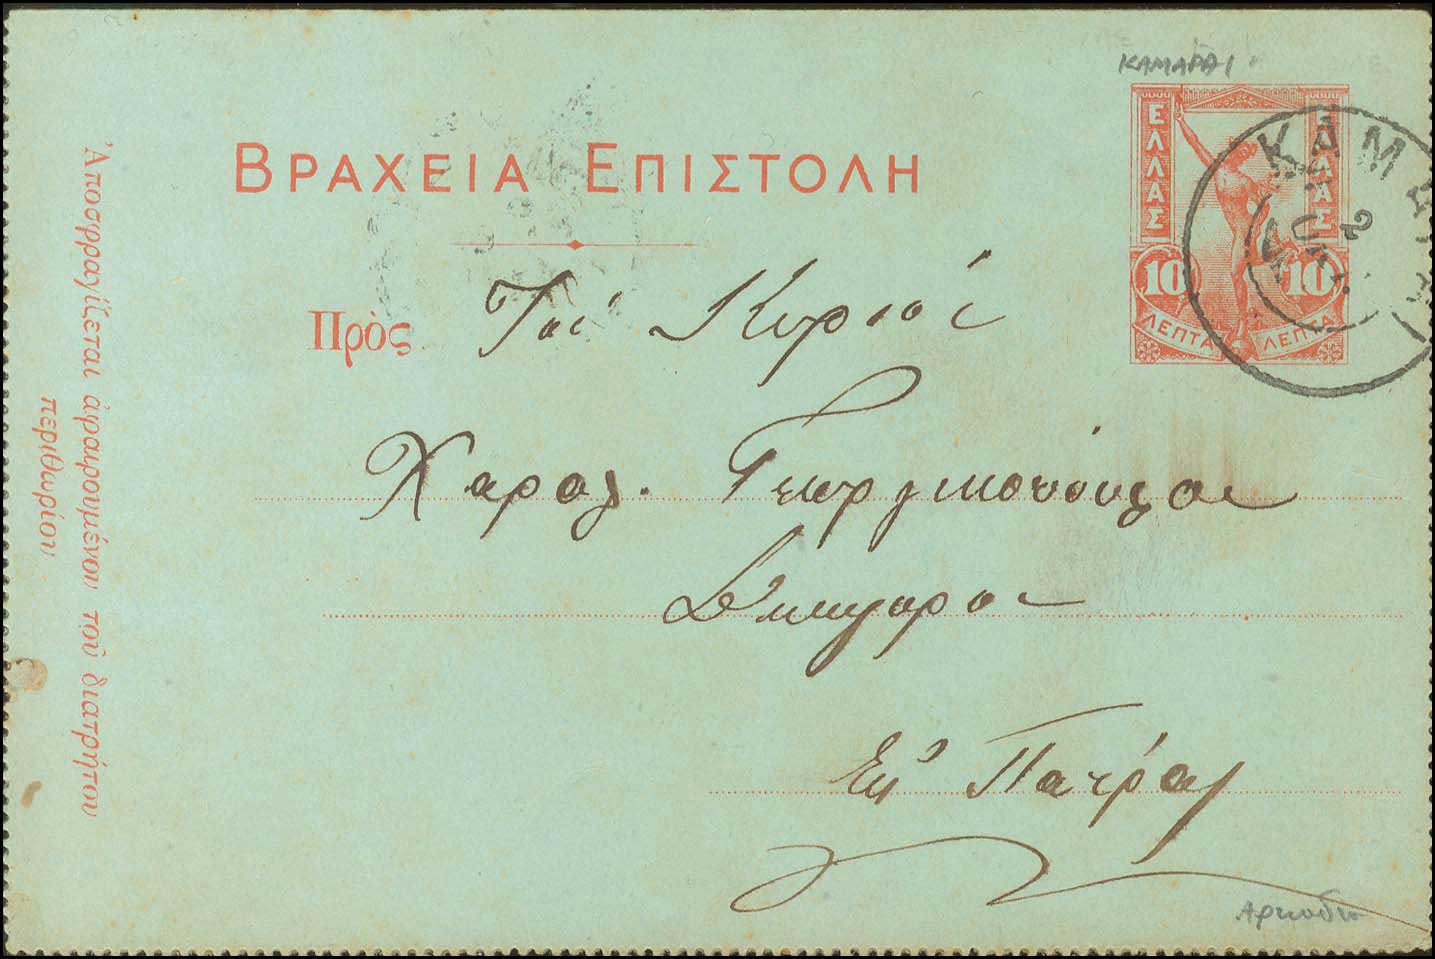 ΚΑΜΑΡΑΙ
ΒΡΑΧΕΙΑ ΕΠΙΣΤΟΛΗ
ΕΛΛΑΣ
ΕΛΛΑΣ
10
10
ΛΕΠΤΑ
ΛΕΠΤΑ
ΚΑΜ
2
Πρὸς
Τῶι Κυρίωι
Χαραλ. Γεωργικοπούλωι
Δικηγόρωι
Εἰς Πάτρας
Ἀποσφραγίζεται ἀφαιρουμένου τοῦ διατρήτου
περιθωρίου